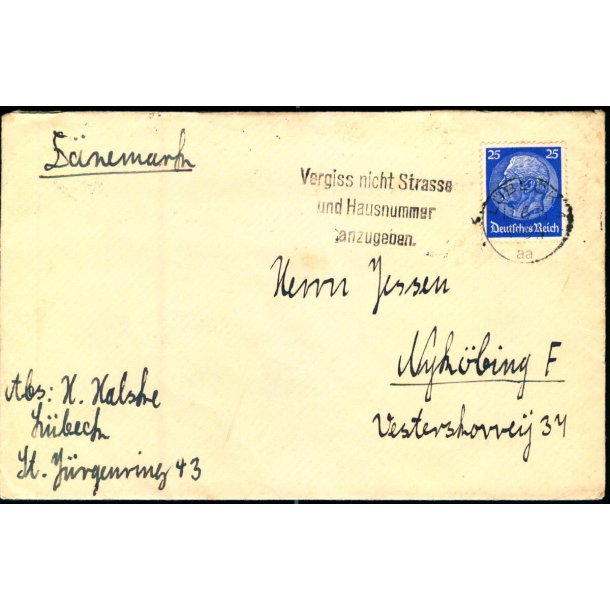 Dänemark
Vergiss nicht Strasse
und Hausnummer
anzugeben.
25 25
Deutsches Reich
LÜBECK
aa
Herrn Jessen
Nyköbing F
Vesterskovvej 34
Abs: H. Halske
Lübeck
St. Jürgenring 43